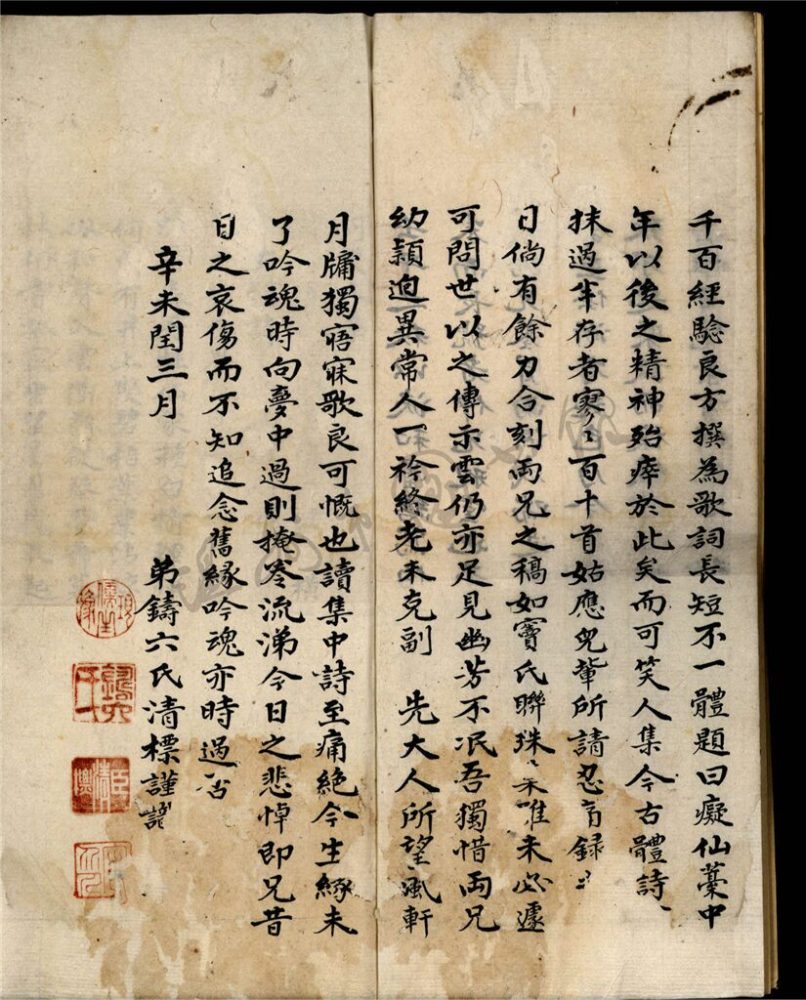 千百經驗良方撰為歌詞長短不一體題曰癡仙藁中
年以後之精神殆瘁於此矣而可笑人集今古體詩
抹過半存者寥々百十首姑應兒輩所請忍肓録
日倘有餘力合刻両兄之稿如竇氏聯珠唯未必遽
可問世以之傳示雲仍亦足見幽芳不泯吾獨惜両兄
幼穎迥異常人一衿終老未克副 先大人所望風軒
月牖獨寤寐歌良可慨也讀集中詩至痛絶今生緣未
了吟魂時向夢中過則掩卷流涕今日之悲悼即兄昔
日之哀傷而不知追念舊緣吟魂亦時過否
辛未閏三月
弟鑄六氏清標謹識